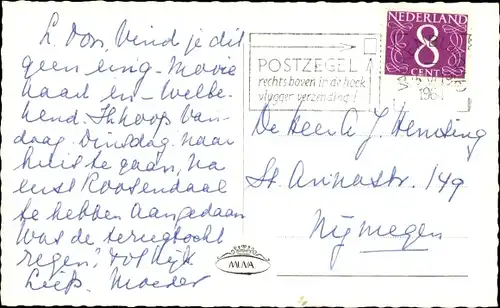 L. Don, Vind je dit
geen enig - Mooie
kaart en - Welbe-
kend. Ik hoop Van-
daag. Dinsdag. naar
huis te gaan, na
eerst Roosendaal
te hebben aangedaan
Was de terugtocht
regen?
Liefs. Moeder
NEDERLAND
8
CENT
POSTZEGEL
rechts boven in de hoek
vlugger verzending!
196
De Heer A J. Hensing
St. Annastr. 149
Nijmegen
MUVA